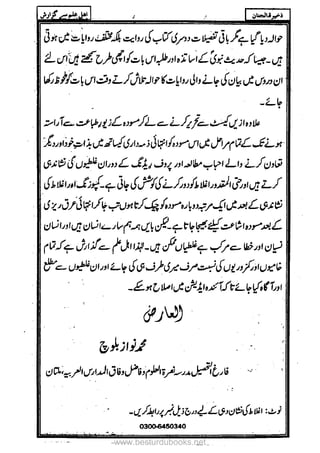 ذخیرۃ الجنان
۷
اہل علم سے گزارش
حوالہ دیا گیا ہے مگر باقی تفصیلات دوسری کتاب کی روایت بلکہ مختلف روایات میں ہوتی
ہیں۔ جیسا کہ حدیث نبویؐ کے اساتذہ اور طلبہ اس بات کو اچھی طرح سمجھتے ہیں اس لئے
ان دروس میں بیان کی جانے والی روایات کا حوالہ تلاش کرتے وقت اس بات کو ملحوظ رکھا
جائے۔
علاوہ ازیں کیسٹ سے تحریر کرنے سے لے کر مسودہ کے زیور طباعت سے آراستہ
ہونے تک کے تمام مراحل میں اس مسودہ کو انتہائی ذمہ داری کیساتھ میں بذات خود اور دیگر
تعاون کرنے والے احباب مطالعہ اور پروف ریڈنگ کے دوران غلطیوں کی نشاندہی
کرتے ہیں اور حتی المقدور اغلاط کو دور کرنے کی کوشش کی جاتی ہے۔ کمپوزنگ اور اغلاط کی
نشاندہی کے بعد میں ایک مرتبہ دوبارہ مسودہ کو چیک کرتا ہوں تب جا کر انتہائی عرق ریزی
کے بعد مسودہ اشاعت کیلئے بھیجا جاتا ہے۔ لیکن بایں ہمہ ہم سارے انسان ہیں اور انسان
نسیان اور خطا سے مرکب ہے غلطیاں ممکن ہیں۔ لہٰذا اہل علم سے گذارش ہے کہ تمام
خامیوں اور کمزوریوں کی نسبت صرف میری طرف ہی کی جائے اور ان غلطیوں سے مطلع
اور آگاہ کیا جائے تاکہ آئندہ ایڈیشن میں اصلاح ہو سکے۔
العارض
محمد نواز بلوچ
فارغ التحصیل مدرسہ نصرۃ العلوم و فاضل وفاق المدارس العربیہ، ملتان
نوٹ: اغلاط کی نشان دہی کے لیے درج ذیل نمبر پر رابطہ کریں۔
0300-6450340
www.besturdubooks.net